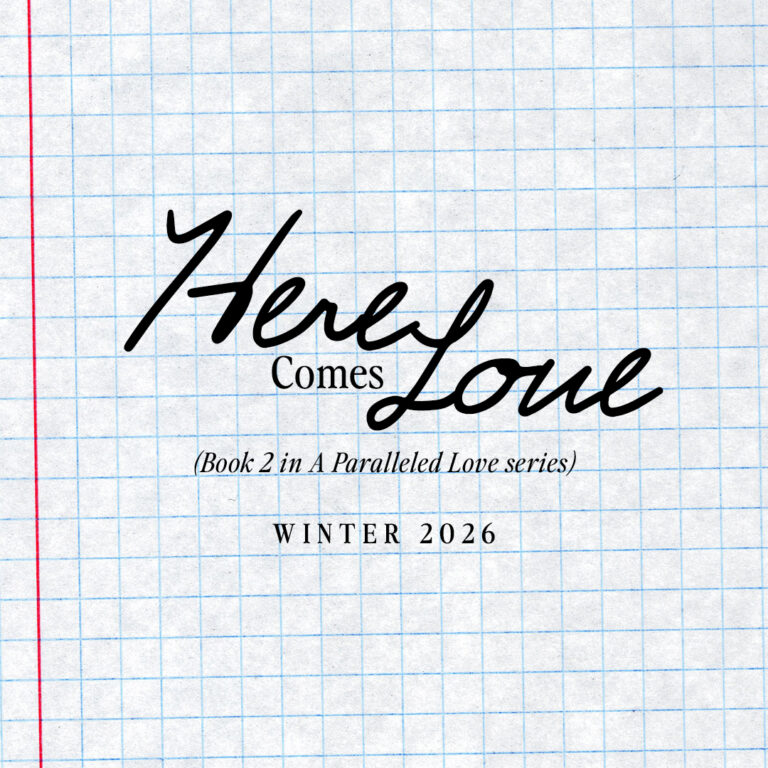 Here
Comes Love
(Book 2 in A Paralleled Love series)
WINTER 2026